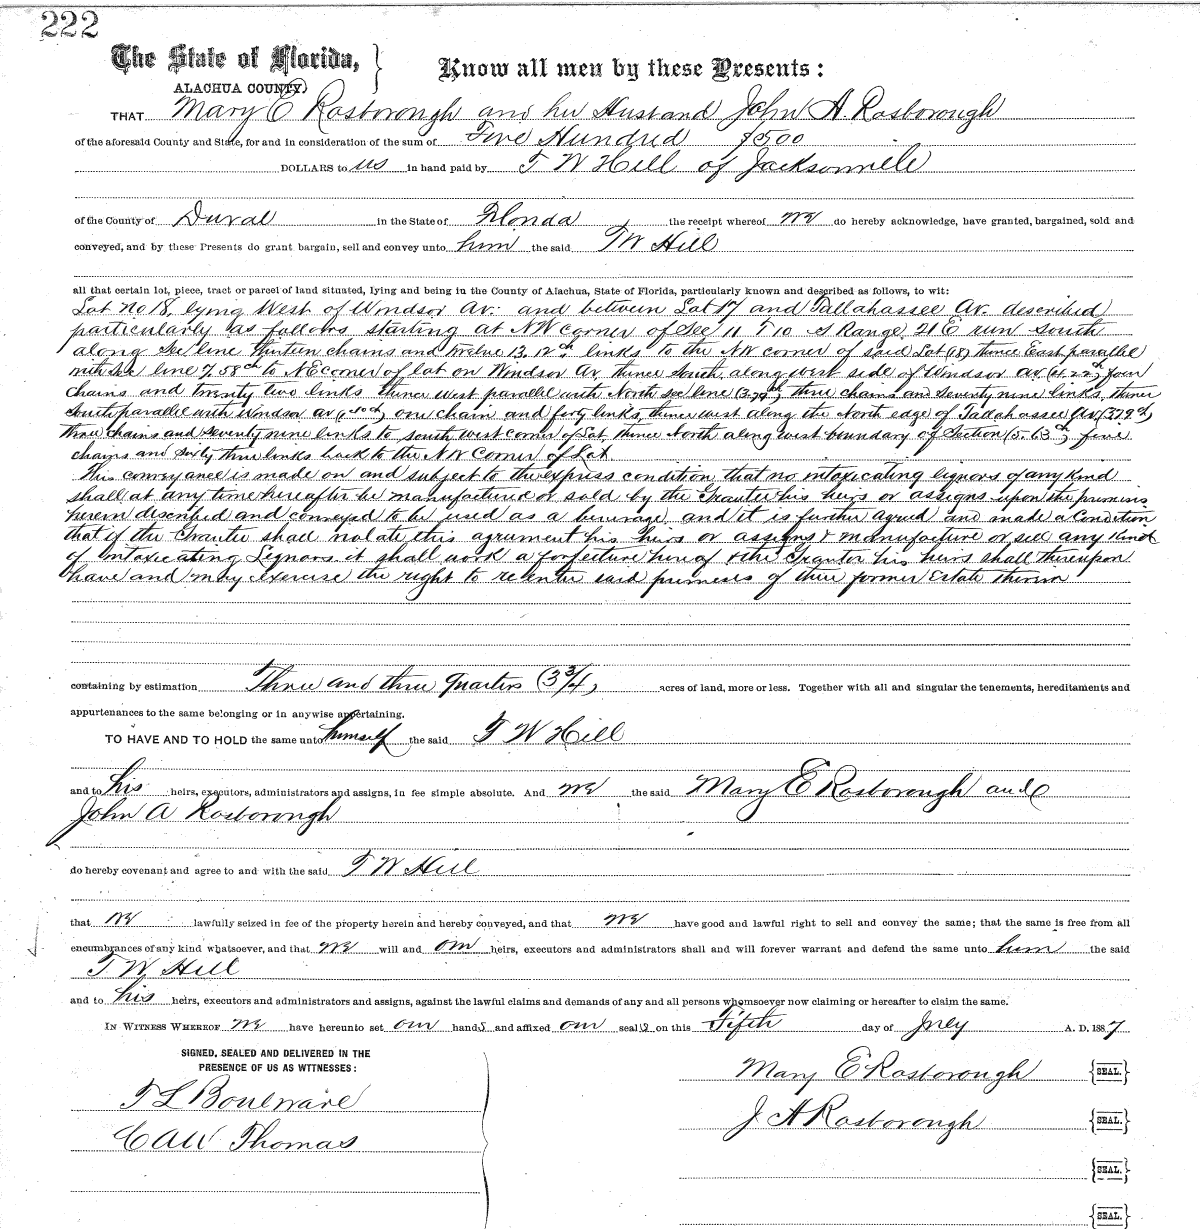 222
The State of Florida,
ALACHUA COUNTY.
Know all men by these Presents:
THAT Mary E Rosborough and her Husband John A. Rosborough
of the aforesaid County and State, for and in consideration of the sum of Five Hundred $500
DOLLARS to us in hand paid by T W Hill of Jacksonville
of the County of Duval in the State of Florida the receipt whereof we do hereby acknowledge, have granted, bargained, sold and
conveyed, and by these Presents do grant bargain, sell and convey unto him the said T W Hill
all that certain lot, piece, tract or parcel of land situated, lying and being in the County of Alachua, State of Florida, particularly known and described as follows, to wit:
Lot No 18, lying West of Windsor Av. and between Lot 17 and Tallahassee Av. described
particularly as follows starting at NW corner of Sec 11 T 10 S Range 21 E run south
along Sec line thirteen chains and twelve 13.12ch links to the NW corner of said Lot (18) thence East parallel
with sec line 7.58ch to NE corner of lot on Windsor Av. thence South along west side of Windsor av (4.22ch) four
chains and twenty two links thence West parallel with North sec line (3.79ch) three chains and seventy nine links, thence
South parallel with Windsor av (1.40ch) one chain and forty links, thence west along the North edge of Tallahassee Av (3.79ch)
three chains and seventy nine links to south west corner of Lot, thence North along west boundary of Section (5.63ch) five
chains and sixty three links back to the NW Corner of Lot
This conveyance is made on and subject to the express condition that no intoxicating liquors of any kind
shall at any time hereafter be manufactured or sold by the Grantee his heirs or assigns upon the premises
herein described and conveyed to be used as a beverage and it is further agreed and made a Condition
that if the Grantee shall violate this agreement his heirs or assigns & manufacture or sell any kind
of intoxicating Liquors it shall work a forfeiture hereof & the Grantor his heirs shall thereupon
have and may exercise the right to reenter said premises of their former Estate therein
containing by estimation Three and three quarters (3 3/4) acres of land, more or less. Together with all and singular the tenements, hereditaments and
appurtenances to the same belonging or in anywise appertaining.
TO HAVE AND TO HOLD the same unto himself the said T W Hill
and to his heirs, executors, administrators and assigns, in fee simple absolute. And we the said Mary E Rosborough and
John A Rosborough
do hereby covenant and agree to and with the said T W Hill
that we lawfully seized in fee of the property herein and hereby conveyed, and that we have good and lawful right to sell and convey the same; that the same is free from all
encumbrances of any kind whatsoever, and that we will and our heirs, executors and administrators shall and will forever warrant and defend the same unto him the said
T W Hill
and to his heirs, executors and administrators and assigns, against the lawful claims and demands of any and all persons whomsoever now claiming or hereafter to claim the same.
IN WITNESS WHEREOF we have hereunto set our hands and affixed our seals on this Fifth day of July A. D. 1887
SIGNED, SEALED AND DELIVERED IN THE
PRESENCE OF US AS WITNESSES:
Mary E Rosborough SEAL.
T L Boulware
J A Rosborough SEAL.
C A W Thomas
SEAL.
SEAL.